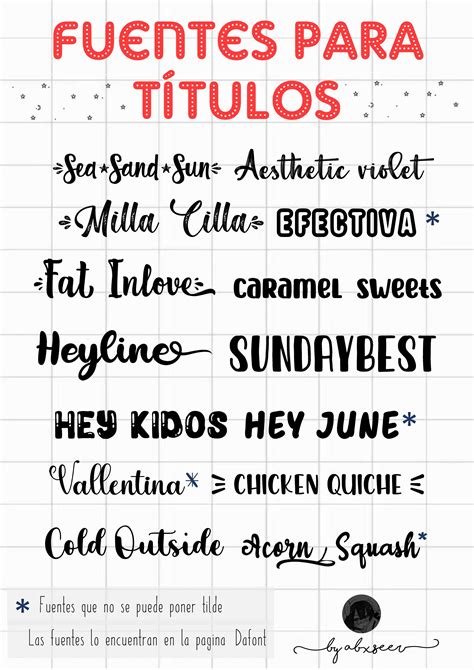 FUENTES PARA
TÍTULOS
Sea★Sand★Sun Aesthetic violet
Milla Cilla EFECTIVA *
Fat Inlove caramel sweets
Heyline SUNDAYBEST
HEY KIDOS HEY JUNE *
Vallentina * CHICKEN QUICHE
Cold Outside Acorn Squash *
* Fuentes que no se puede poner tilde
Las fuentes lo encuentran en la pagina Dafont
by abxseen